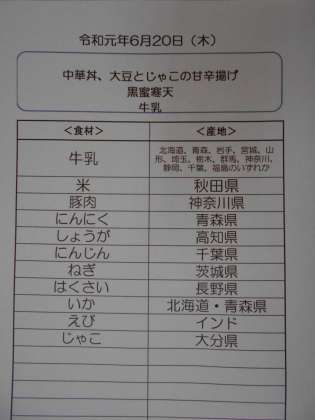 令和元年6月20日（木）
中華丼、大豆とじゃこの甘辛揚げ
黒蜜寒天
牛乳
＜食材＞ ＜産地＞
牛乳 北海道、青森、岩手、宮城、山
形、埼玉、栃木、群馬、神奈川、
静岡、千葉、福島のいずれか
米 秋田県
豚肉 神奈川県
にんにく 青森県
しょうが 高知県
にんじん 千葉県
ねぎ 茨城県
はくさい 長野県
いか 北海道・青森県
えび インド
じゃこ 大分県